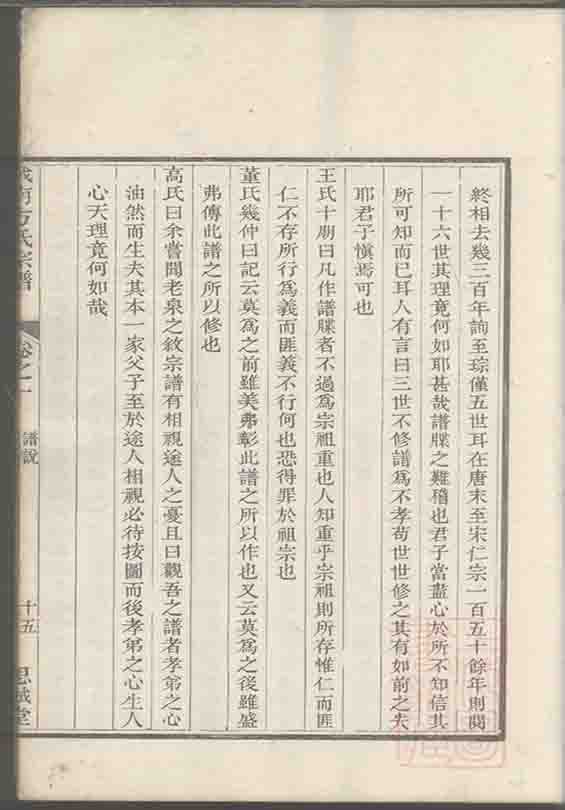 終相去幾三百年詢至琮僅五世耳在唐末至宋仁宗一百五十餘年則閱
一十六世其理竟何如耶甚哉譜牒之難稽也君子當盡心於所不知信其
所可知而已耳人有言曰三世不修譜爲不孝苟世世修之其有如前之失
耶君子慎焉可也
王氏十朋曰凡作譜牒者不過爲宗祖重也人知重乎宗祖則所存惟仁而匪
仁不存所行爲義而匪義不行何也恐得罪於祖宗也
董氏幾仲曰記云莫爲之前雖美弗彰此譜之所以作也又云莫爲之後雖盛
弗傳此譜之所以修也
高氏曰余嘗聞老泉之敘宗譜有相視途人之憂且曰觀吾之譜者孝弟之心
油然而生夫其本一家父子至於途人相視必待按圖而後孝弟之心生人
心天理竟何如哉
南方氏宗譜
卷之一
譜說
十五
思誠堂